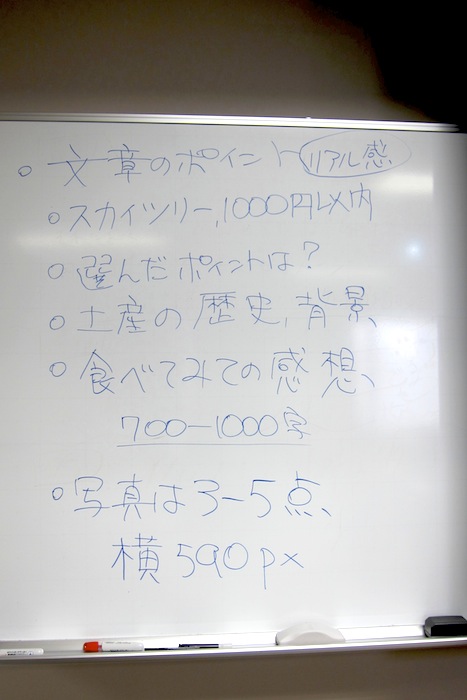 ○文章のポイント リアル感
○スカイツリー,1000円以内
○選んだポイントは?
○土産の歴史、背景、
○食べてみての感想、
700-1000字
○写真は3-5点、
横590px